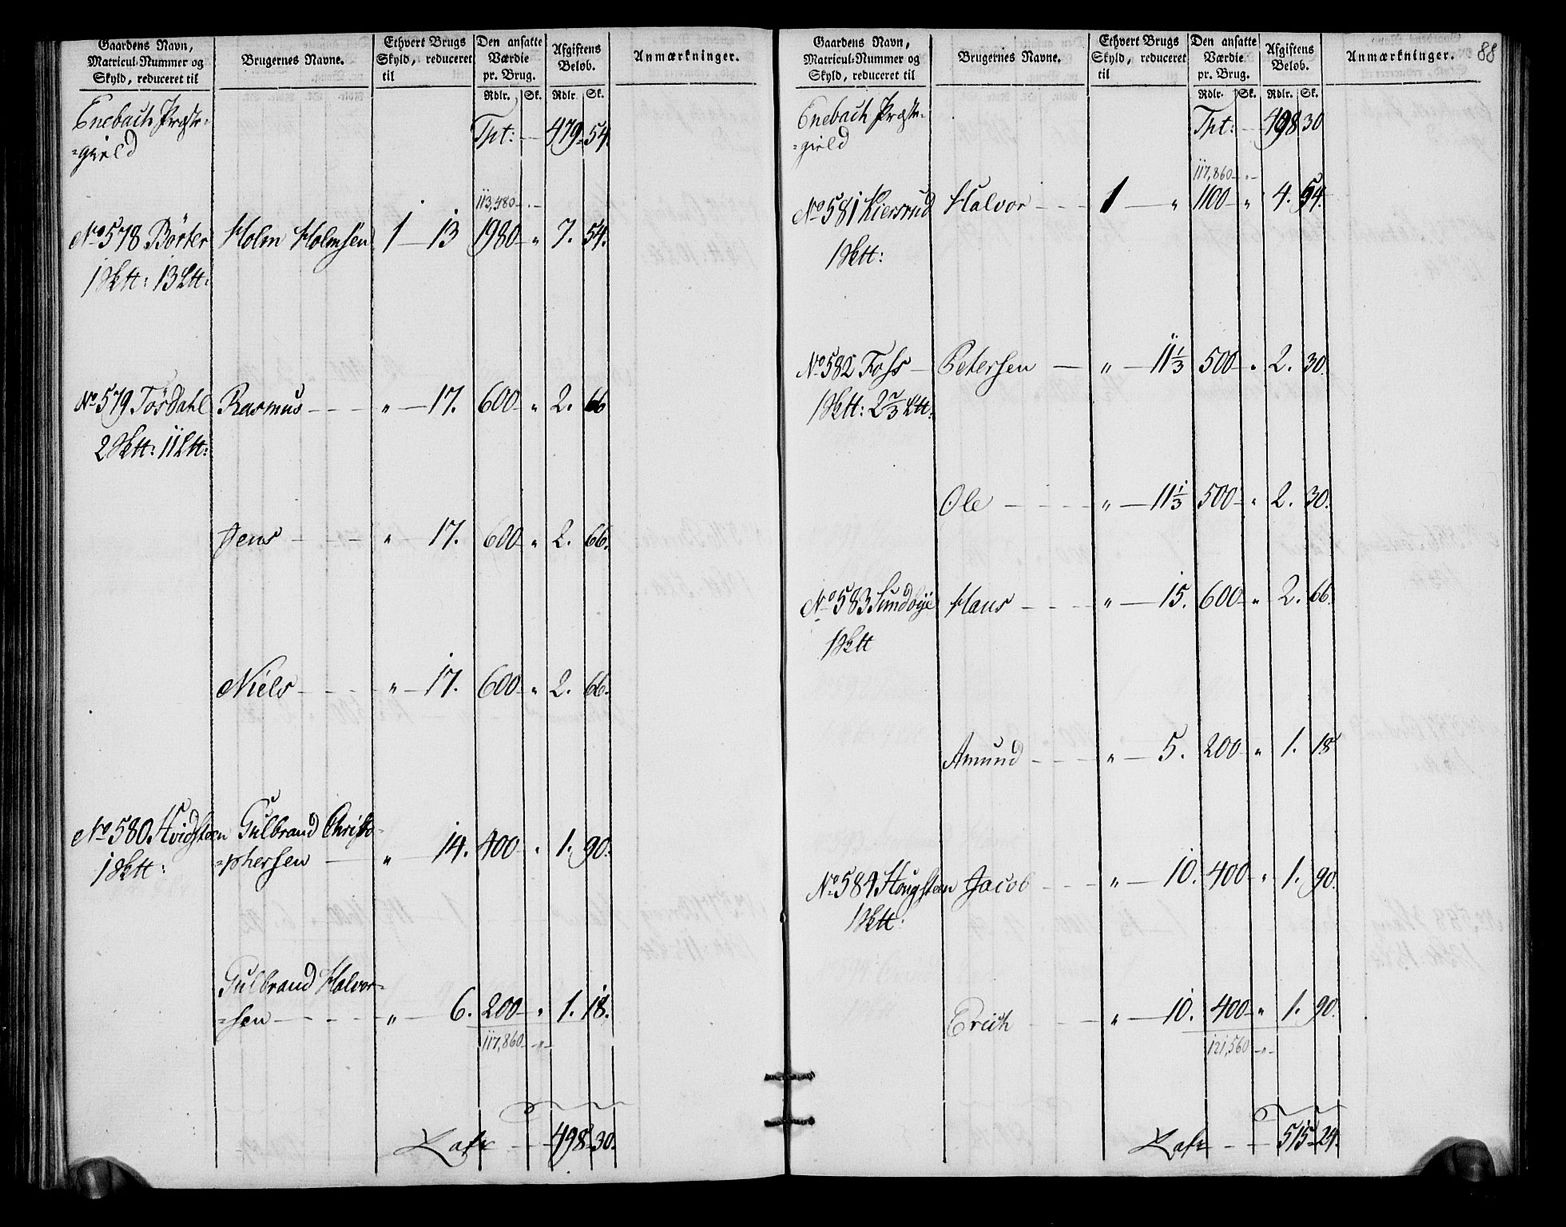 Gaardens Navn,
Matricul-Nummer og
Skyld, reduceret til
Brugernes Navne.
Ethvert Brugs
Skyld, reduceret
til
Den ansatte
Værdie
pr. Brug.
Rdlr. Sk.
Afgiftens
Beløb.
Rdlr. Sk.
Anmærkninger.
Enebach Præste-
=gield
Tpt: 479. 54.
113,480
No 578 Börter Holm Holmsen 1 - 13 1980 " 7. 54.
1 Sktt: 13 Ltt:
No 579 Tordahl Rasmus " 17. 600 " 2. 66
2 Sktt: 11 Ltt:
Jens " 17. 600 " 2. 66.
Niels " 17. 600 " 2. 66.
No 580 Hvidsteen Gulbrand Christo-
1 Sktt: =phersen " 14. 400 " 1. 90.
Gulbrand Halvor-
=sen " 6. 200 " 1. 18.
117,860 "
Latr 498. 30.
88
Gaardens Navn,
Matricul-Nummer og
Skyld, reduceret til
Brugernes Navne.
Ethvert Brugs
Skyld, reduceret
til
Den ansatte
Værdie
pr. Brug.
Rdlr. Sk.
Afgiftens
Beløb.
Rdlr. Sk.
Anmærkninger.
Enebach Præste-
=gield
Tpt: 498 30
117,860 "
No 581 Kiersrud Halvor 1 " 1100 " 4. 54.
1 Sktt:
No 582 Foss Petersen " 11 1/3 500 " 2. 30.
1 Sktt: 2 2/3 Ltt:
Ole " 11 1/3 500 " 2. 30.
No 583 Sundbye Hans " 15. 600 " 2. 66.
1 Sktt
Amund " 5. 200 " 1. 18
No 584 Hougsteen Jacob " 10. 400 " 1. 90.
1 Sktt.
Erich " 10. 400 " 1. 90.
121,560 "
Latr 515. 24.